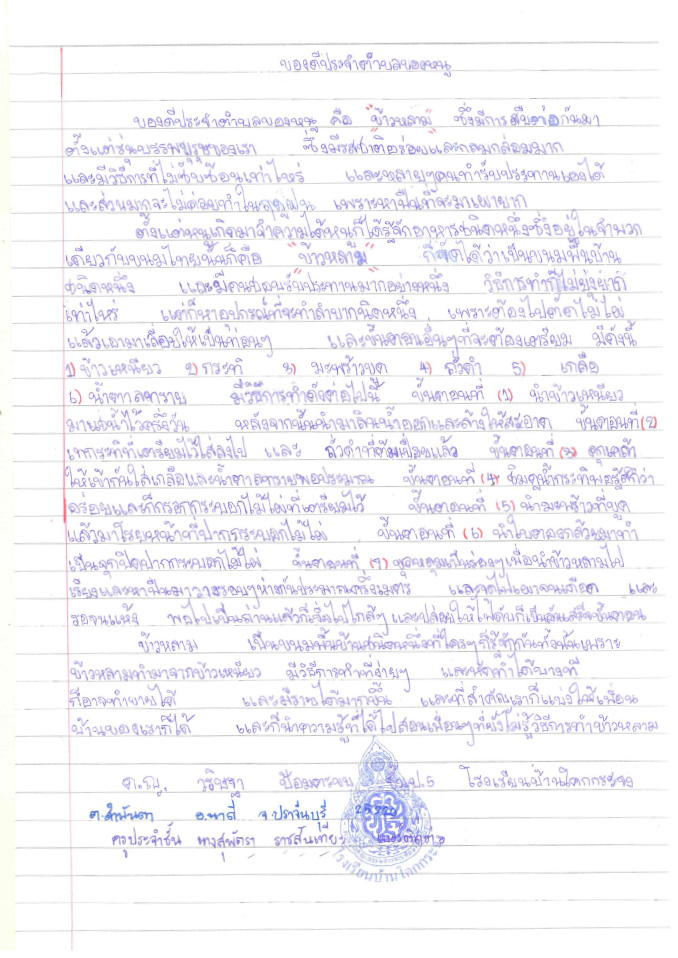 ของดีประจำตำบลของหนู
ของดีประจำตำบลของหนู คือ "ข้าวหลาม" ซึ่งมีการสืบต่อกันมา
ตั้งแต่รุ่นบรรพบุรุษของเรา ซึ่งมีรสชาติอร่อยและกลมกล่อมมาก
และมีวิธีการที่ไม่ซับซ้อนเท่าไหร่ และหลายๆคนทำรับประทานเองได้
และส่วนมากจะไม่ค่อยทำในฤดูฝน เพราะหาฟืนที่จะมาเผายาก
ตั้งแต่หนูเกิดมาจำความได้หนูก็ได้รู้จักอาหารชนิดหนึ่งซึ่งอยู่ในจำพวก
เดียวกับขนมไทยนั้นก็คือ "ข้าวหลาม" ก็จัดได้ว่าเป็นขนมพื้นบ้าน
ชนิดหนึ่ง และมีคนชอบรับประทานมากอย่างหนึ่ง วิธีการทำก็ไม่ยุ่งยาก
เท่าไหร่ แต่ก็หาอุปกรณ์ที่จะทำลำบากนิดหนึ่ง เพราะต้องไปตัดไม้ไผ่
แล้วเอามาเลื่อยให้เป็นท่อนๆ และขั้นตอนอื่นๆที่จะต้องเตรียม มีดังนี้
1) ข้าวเหนียว 2) กระทิ 3) มะพร้าวขูด 4) ถั่วดำ 5) เกลือ
6) น้ำตาลทราย มีวิธีการทำดังต่อไปนี้ ขั้นตอนที่ (1) นำข้าวเหนียว
มาแช่น้ำไว้ครึ่งวัน หลังจากนั้นนำมารินน้ำออกและล้างให้สะอาด ขั้นตอนที่ (2)
เทกระทิที่เตรียมไว้ใส่ลงไป และ ถั่วดำที่ต้มเปื่อยแล้ว ขั้นตอนที่ (3) คลุกเคล้า
ให้เข้ากันใส่เกลือและน้ำตาลทรายพอประมาณ ขั้นตอนที่ (4) ชิมดูน้ำกระทิพอรู้สึกว่า
อร่อยและก็กรอกกระบอกไม้ไผ่ที่เตรียมไว้ ขั้นตอนที่ (5) นำมะพร้าวที่ขูด
แล้วมาโรยหน้าที่ปากกระบอกไม้ไผ่ ขั้นตอนที่ (6) นำใบตองกล้วยมาทำ
เป็นจุกปิดปากกระบอกไม้ไผ่ ขั้นตอนที่ (7) ขุดหลุมเป็นร่องๆเพื่อนำข้าวหลามไป
เรียงและหาฟืนมาวางรอบๆห่างกันประมาณครึ่งเมตร และจุดไฟเผาจนเดือด และ
รอจนแห้ง พอไฟเป็นถ่านแล้วก็เขี่ยไปใกล้ๆ และปล่อยให้ไฟดับก็เป็นอันเสร็จขั้นตอน
ข้าวหลาม เป็นขนมพื้นบ้านชนิดหนึ่งที่ใครๆก็รู้จักกันทั้งนั้นเพราะ
ข้าวหลามทำมาจากข้าวเหนียว มีวิธีการทำที่ง่ายๆ และหัดทำได้บางที
ก็อาจทำขายได้ และมีรายได้มากขึ้น และที่สำคัญเราก็แบ่งให้เพื่อน
บ้านของเราก็ได้ และก็นำความรู้ที่ได้ไปสอนเพื่อนๆที่ยังไม่รู้วิธีการทำข้าวหลาม
ด.ญ. ชั้นป.5 โรงเรียนบ้านโคกกระจง
ต.สำพันตา อ.นาดี จ.ปราจีนบุรี 25220
ครูประจำชั้น นางสุพัตรา
โรงเรียนบ้านโคกกระ